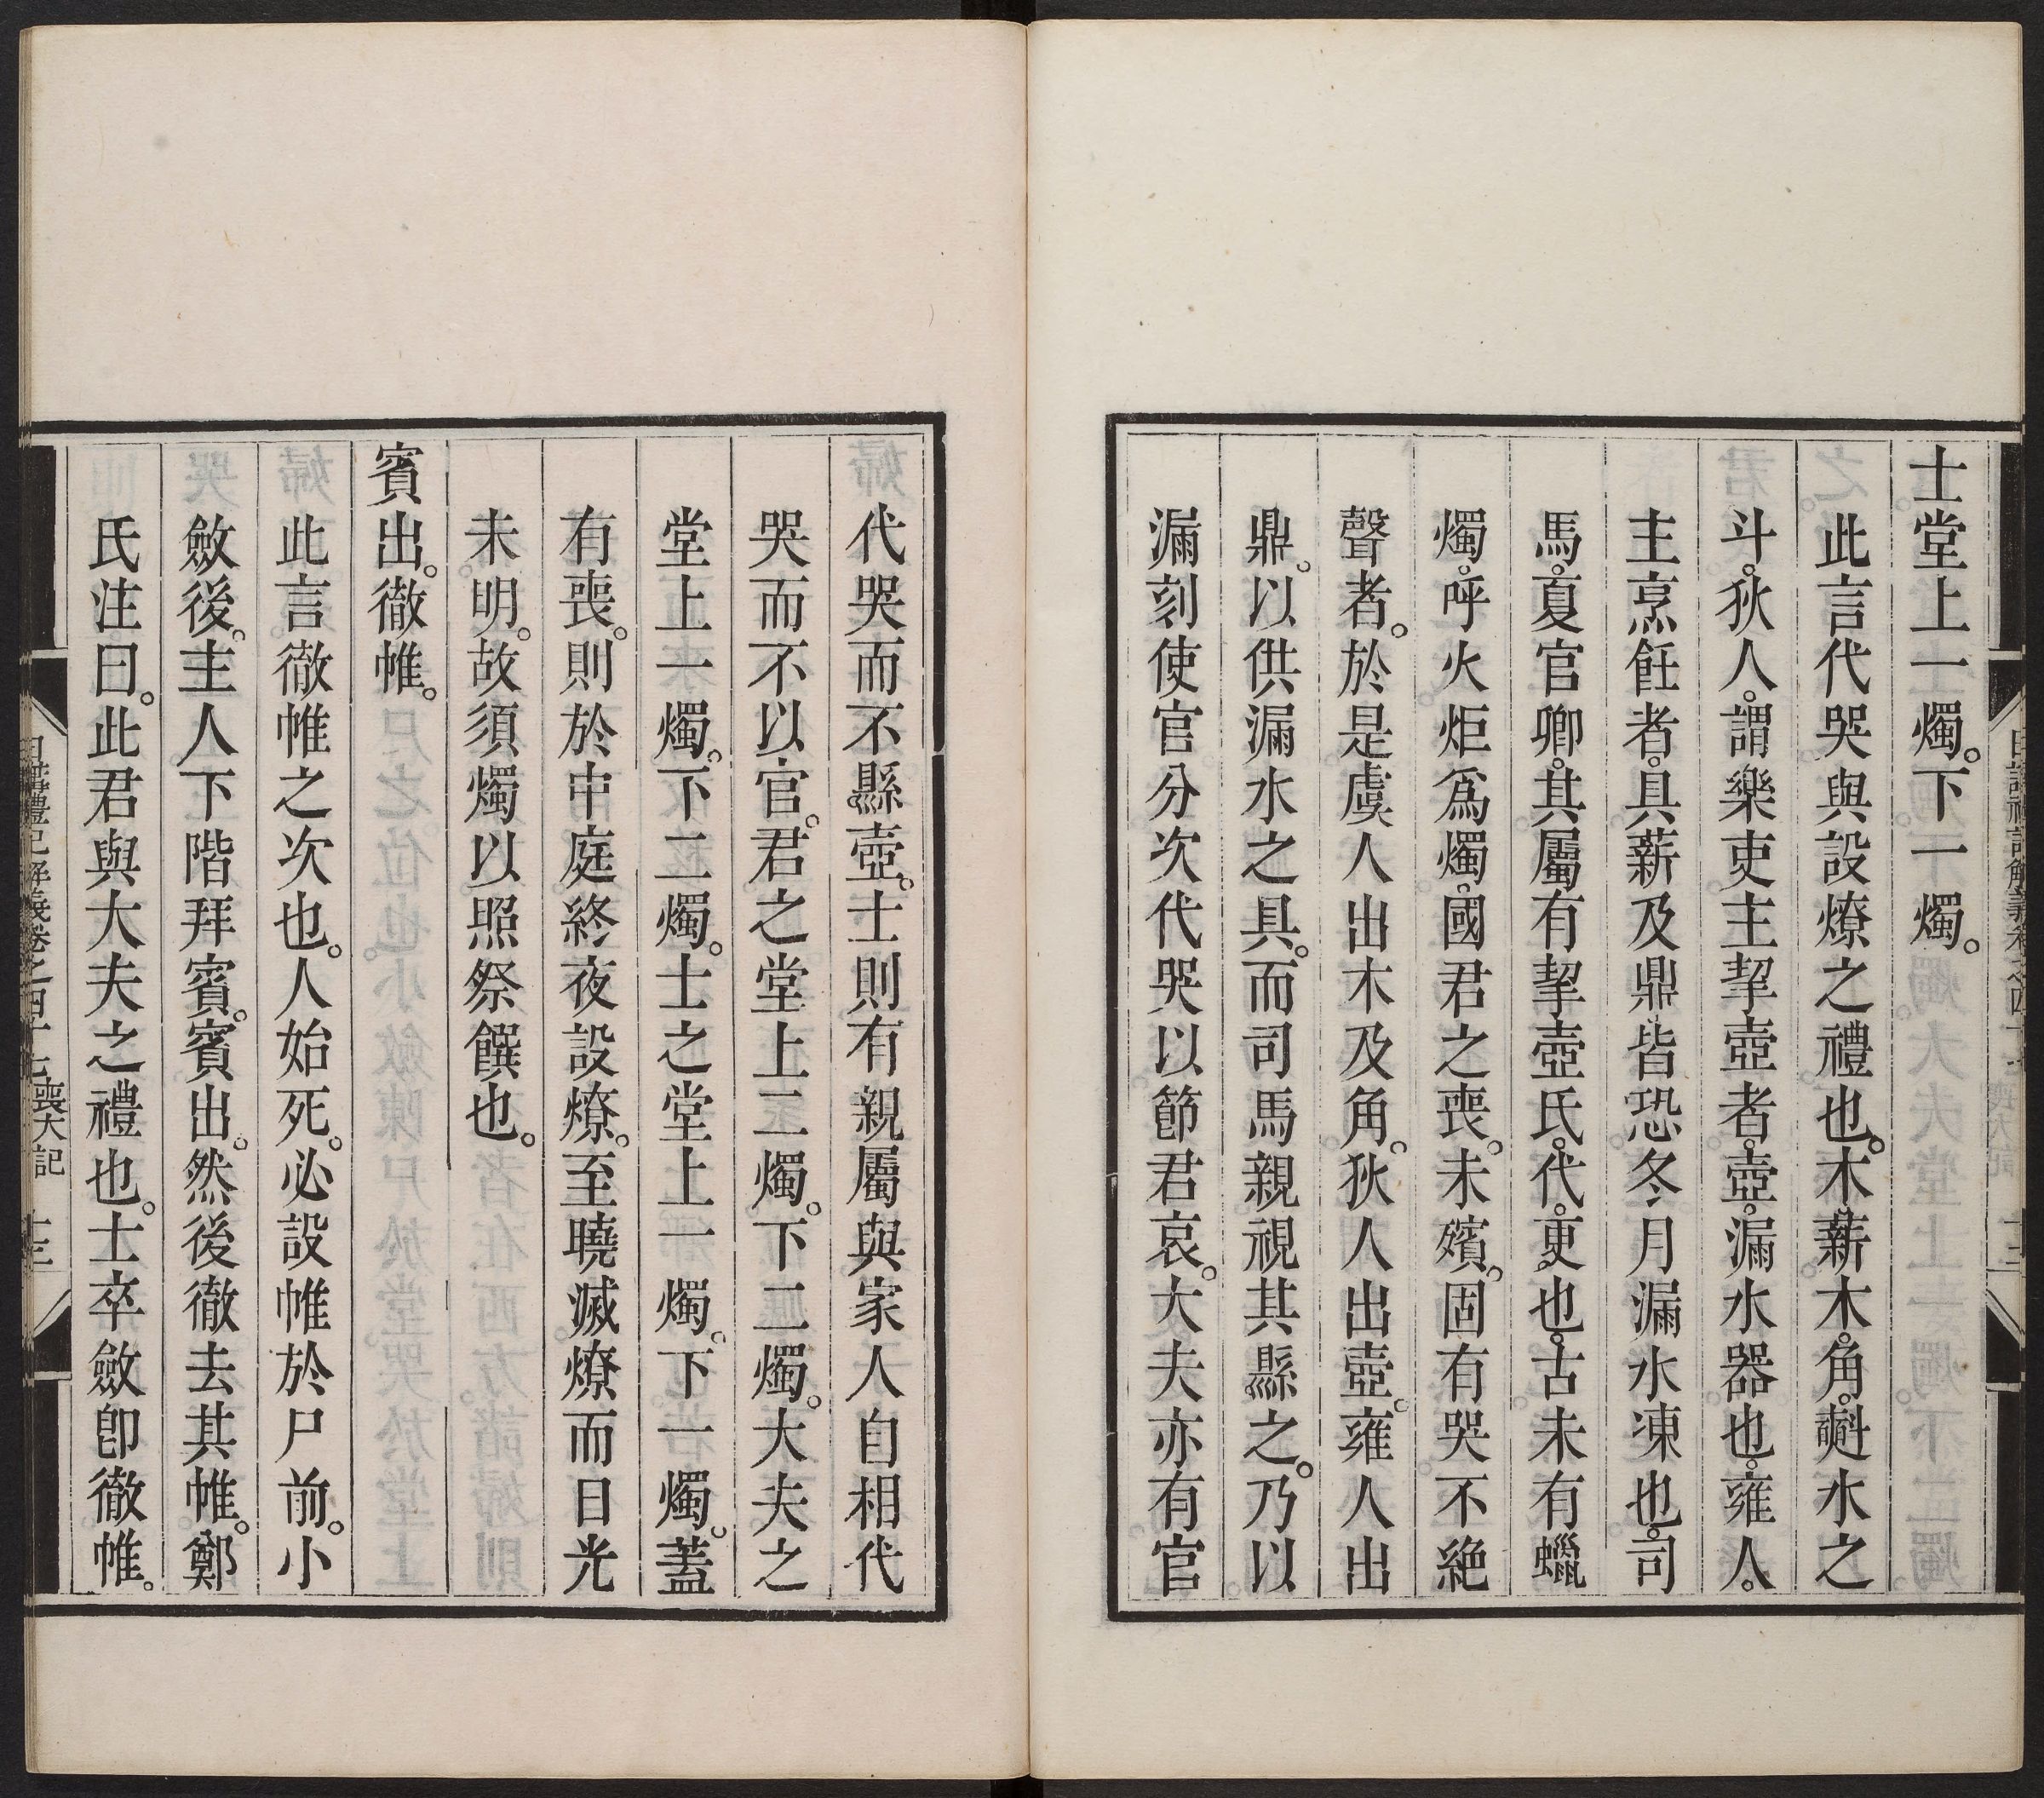 士堂上一燭。下一燭。
此言代哭與設燎之禮也。木。薪木。角。㪺水之
斗。狄人。謂樂吏主挈壺者。壺。漏水器也。雍人。
主烹飪者。具薪及鼎皆恐冬月漏水凍也。司
馬。夏官卿。其屬有挈壺氏。代。更也。古未有蠟
燭。呼火炬爲燭。國君之喪。未殯。固有哭不絶
聲者。於是虞人出木及角。狄人出壺。雍人出
鼎。以供漏水之具。而司馬親視其縣之。乃以
漏刻使官分次代哭以節君哀。大夫亦有官
代哭而不縣壺。士則有親屬與家人自相代
哭而不以官。君之堂上二燭。下二燭。大夫之
堂上一燭。下二燭。士之堂上一燭。下一燭。蓋
有喪。則於中庭終夜設燎。至曉滅燎而日光
未明。故須燭以照祭饌也。
賓出。徹帷。
此言徹帷之次也。人始死。必設帷於尸前。小
斂後。主人下階拜賓。賓出。然後徹去其帷。鄭
氏注曰。此君與大夫之禮也。士卒斂卽徹帷。
日講禮記解義卷之四十七 喪大記 十三